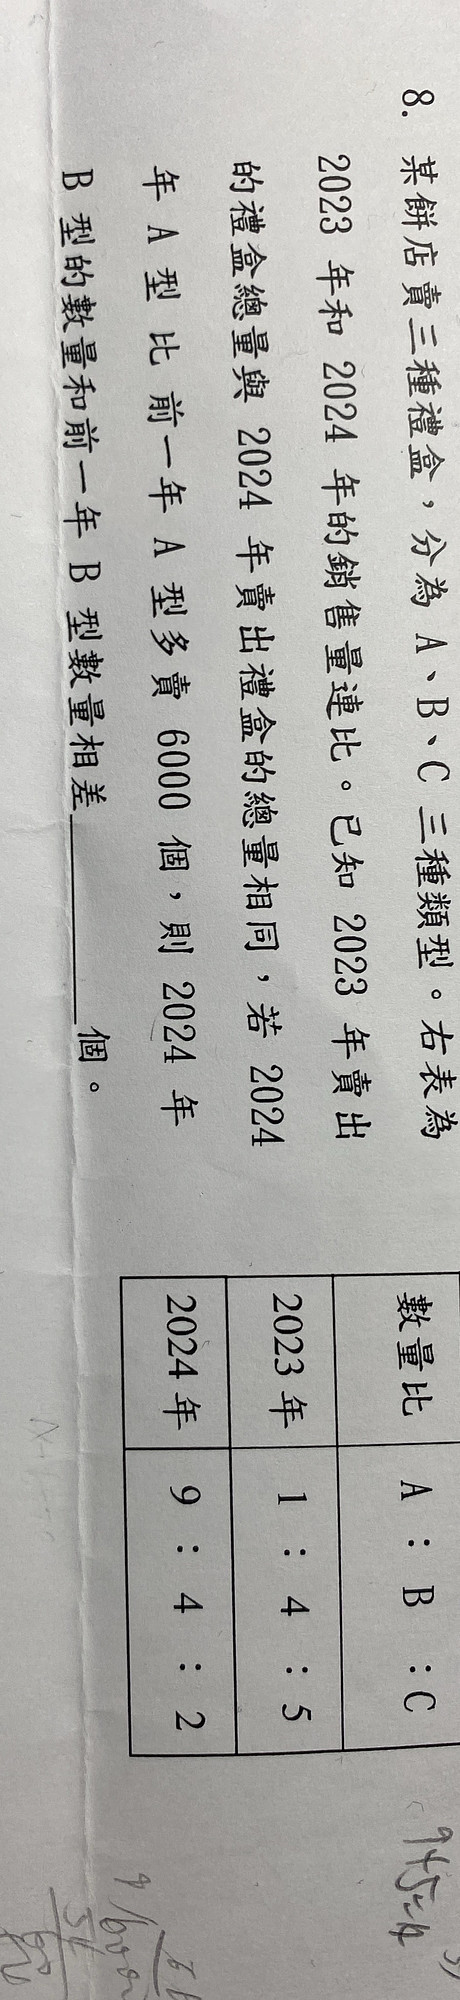 8. 某餅店賣三種禮盒，分為 A、B、C 三種類型。右表為
2023 年和 2024 年的銷售量連比。已知 2023 年賣出
的禮盒總量與 2024 年賣出禮盒的總量相同，若 2024
年 A 型比前一年 A 型多賣 6000 個，則 2024 年
B 型的數量和前一年 B 型數量相差______個。
數量比 A : B : C
2023 年 1 : 4 : 5
2024 年 9 : 4 : 2